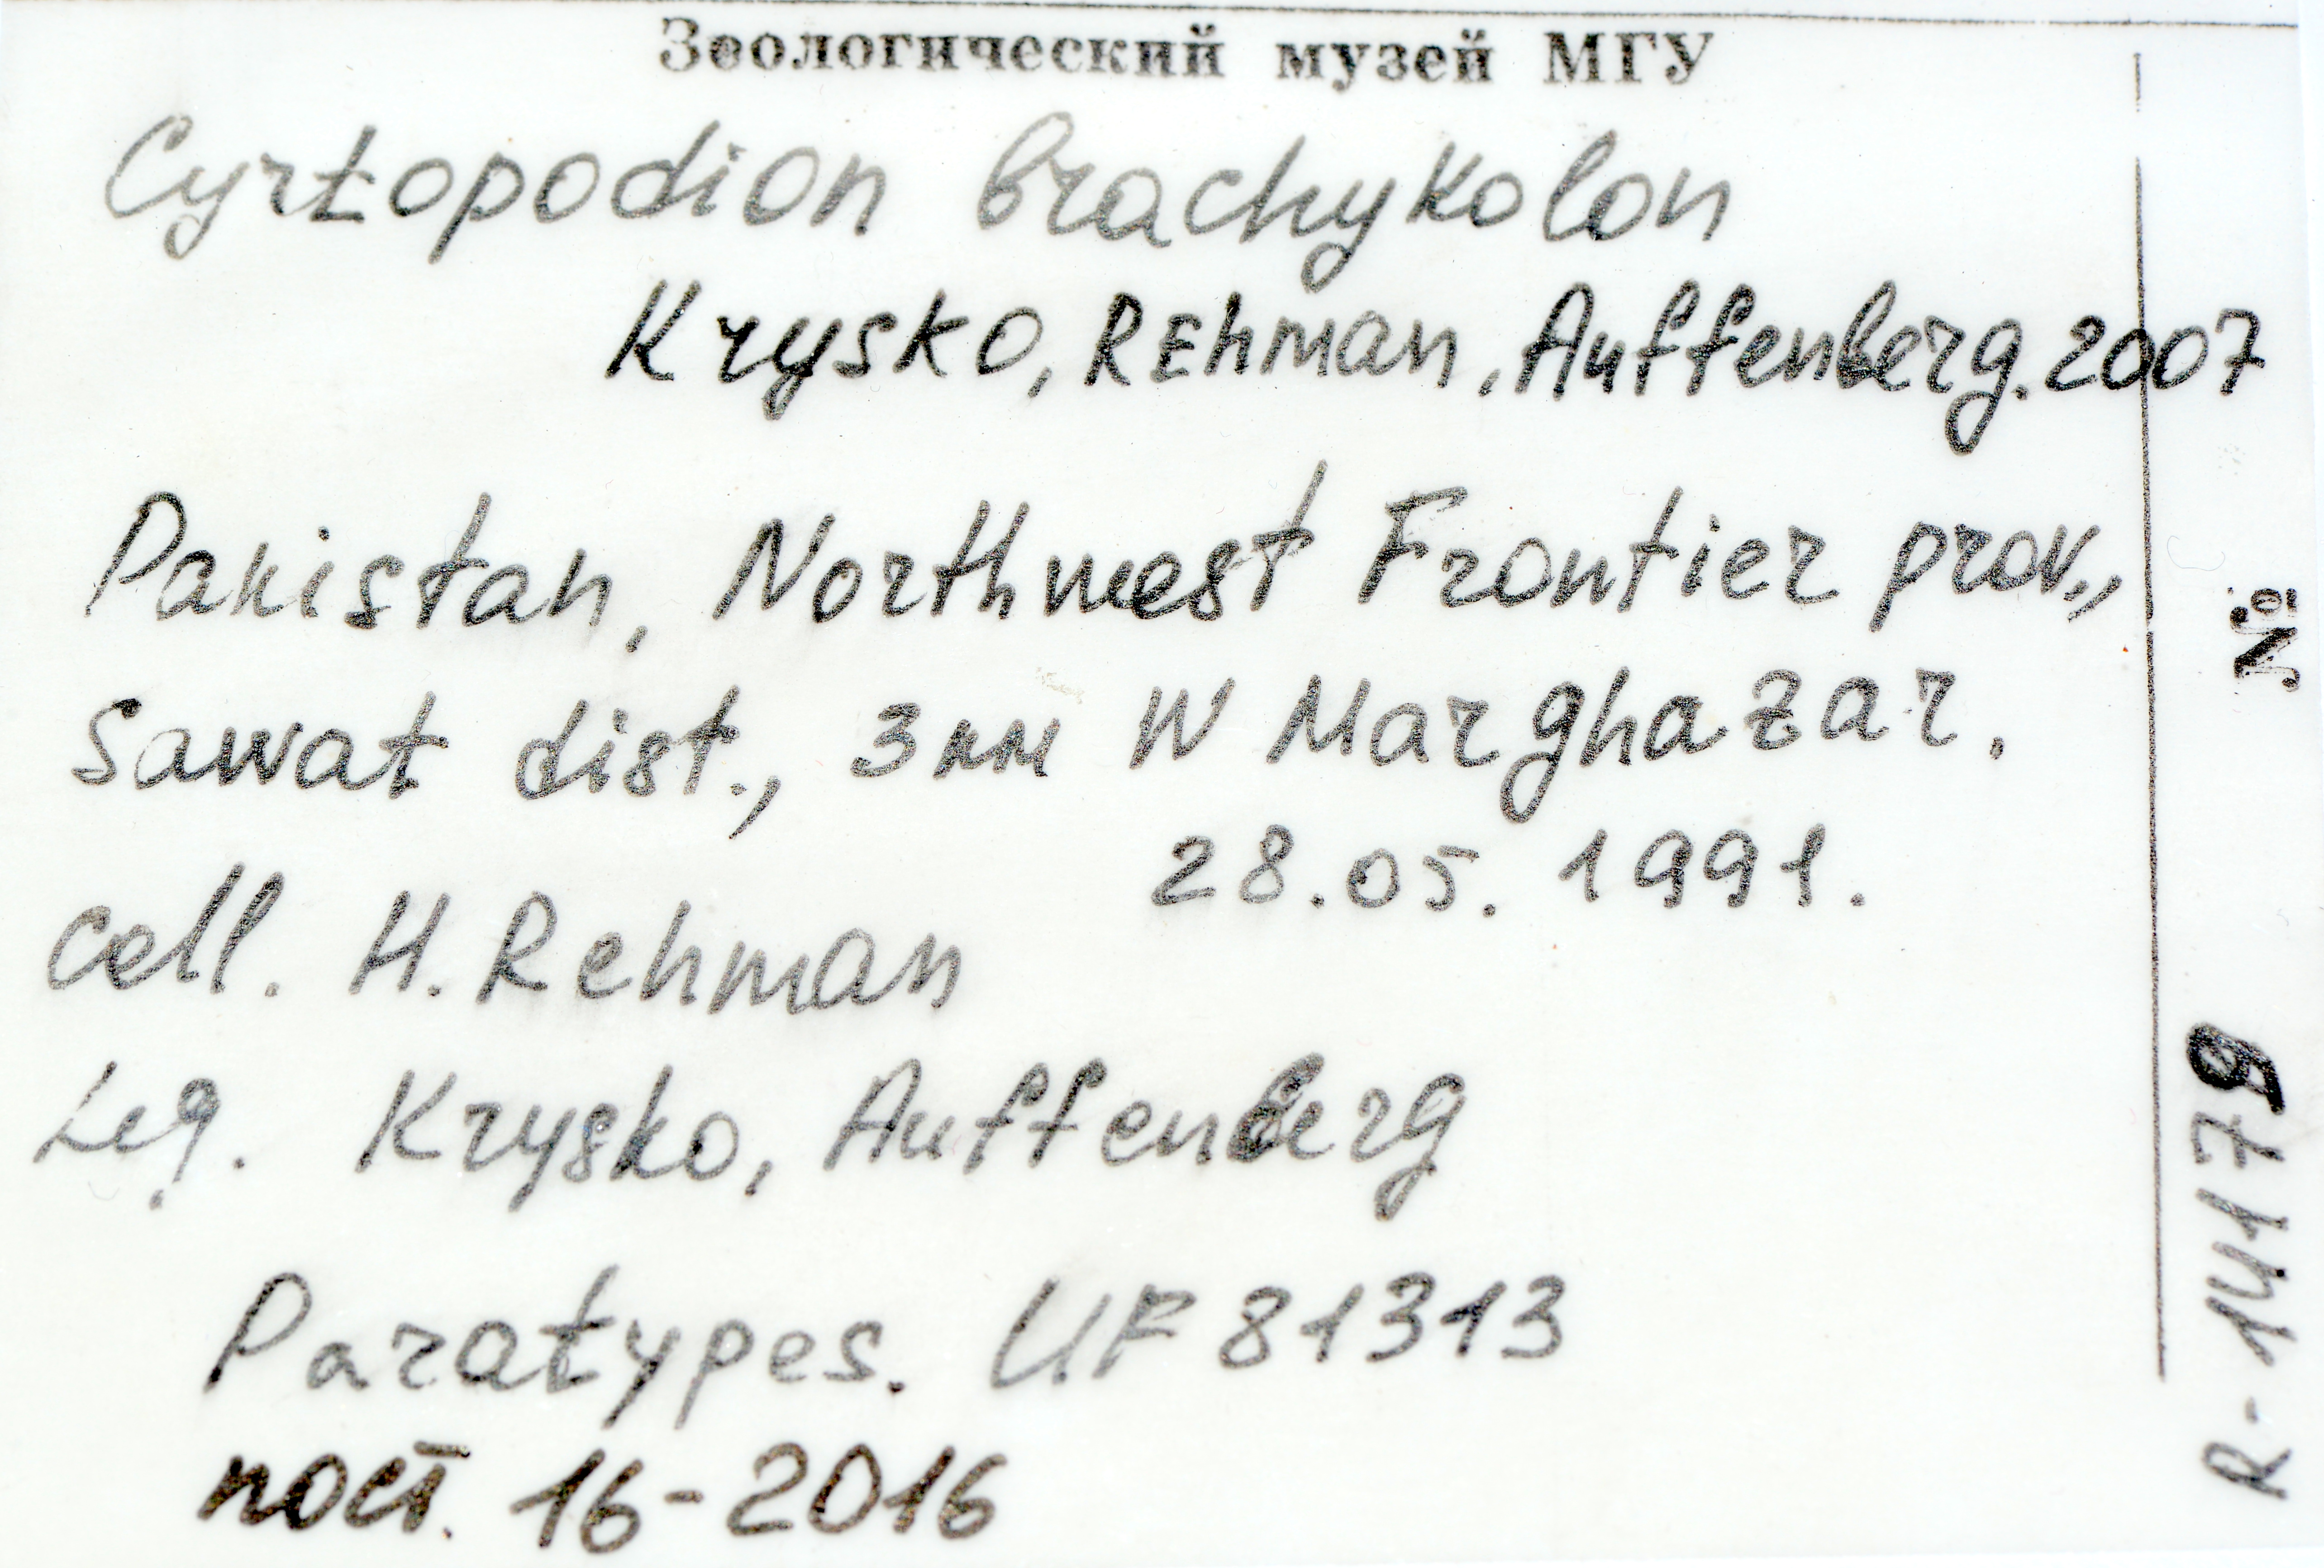 Зоологический музей МГУ
Cyrtopodion brachykolon
Krysko, Rehman, Auffenberg. 2007
Pakistan, Northwest Frontier prov.,
Sawat dist., 3 км W Marghazar.
28.05.1991.
Coll. H. Rehman
Leg. Krysko, Auffenberg
Paratypes. UF 81313
пост. 16-2016
№ R-14179